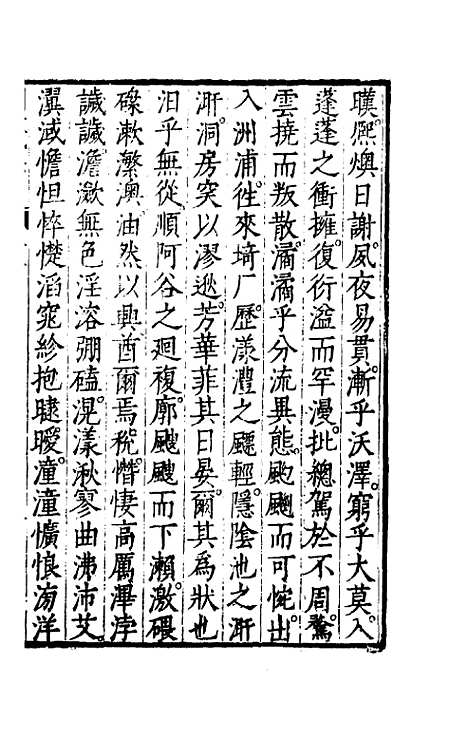 暵熈燠日謝夙夜易貫漸乎沃澤。窮乎大莫。入
蓬蓬之衝擁。復衍溢而罕漫。批總駕於不周。鶩
雲撓而叛散。潏潏乎分流異態。颫颫而可惋。出
入洲浦。徃來埼厂。歷漾灃之飂輕。隱陰池之洐
洐。洞房突以漻遫。芳華菲其日晏。爾其為狀也
汨乎無從。順阿谷之廻複。廓颼颼而下瀨。激碨
磥漱瀿澳。油然以興。酋爾焉稅。憯悽高厲畢浡
譤譤澹澉。無色淫溶弸磕。滉漾湫寥。曲沸沛艾。
瀷淢憺怛。悴㦗滔窕。紾抱曃曖。潼潼懭悢。沕洋